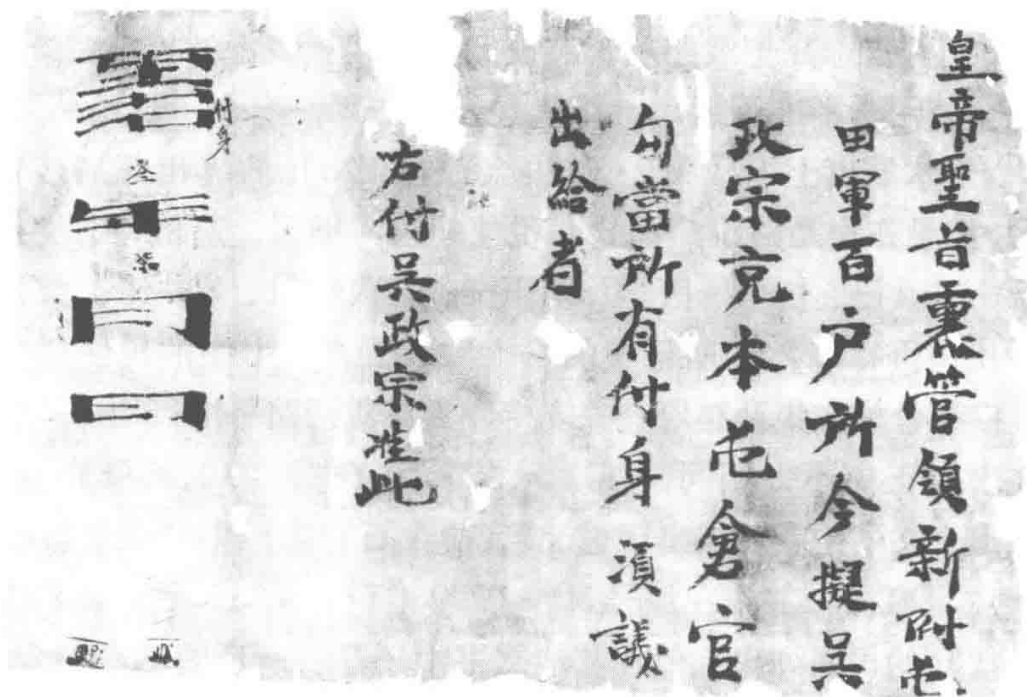 皇帝聖旨裏管領新附屯
田軍百户所今擬吳
政宗充本屯倉官
勾當所有付身須議
出給者
右付吳政宗准此
付身